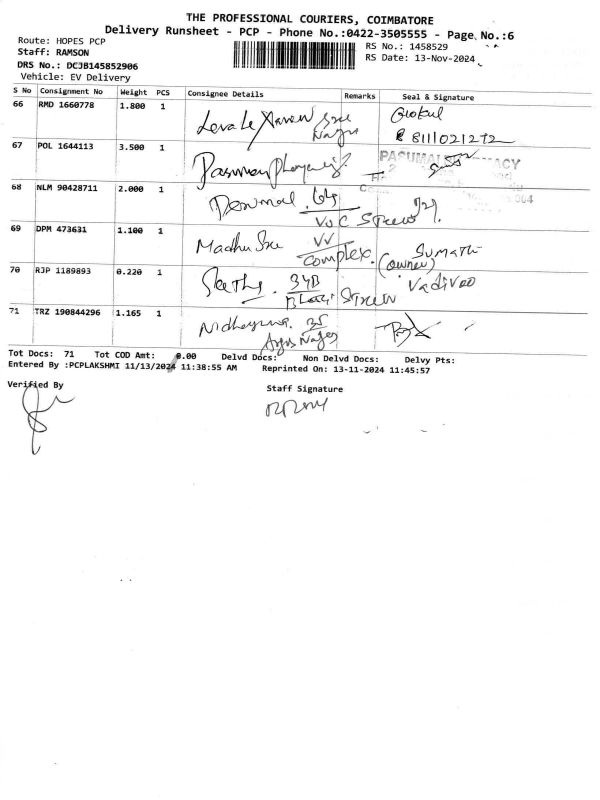 THE PROFESSIONAL COURIERS, COIMBATORE
Delivery Runsheet - PCP - Phone No.:0422-3505555 - Page No.:6
Route: HOPES PCP
RS No.: 1458529
Staff: RAMSON
RS Date: 13-Nov-2024
DRS No.: DCJB145852906
Vehicle: EV Delivery
S No Consignment No Weight PCS Consignee Details Remarks Seal & Signature
66 RMD 1660778 1.800 1 Gokul
Nagar
8111021272
67 POL 1644113 3.500 1
68 NLM 90428711 2.000 1
VOC Street
69 DPM 473631 1.100 1 Madhu Sree VV
Complex. (owner) Sumathi
70 RJP 1189893 0.220 1 34B
Street Vadivoo
71 TRZ 190844296 1.165 1 35
Nagar
Tot Docs: 71 Tot COD Amt: 0.00 Delvd Docs: Non Delvd Docs: Delvy Pts:
Entered By :PCPLAKSHMI 11/13/2024 11:38:55 AM Reprinted On: 13-11-2024 11:45:57
Verified By
Staff Signature